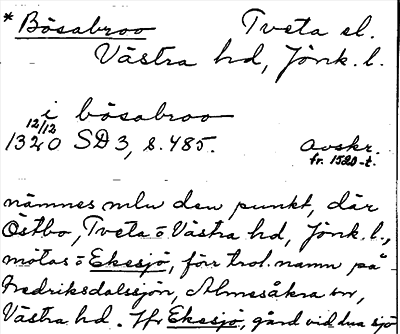 * Bösabroo Tveta el.
Västra hd, Jönk. l.
i bösabroo
12/12
1320 SD 3, s. 485. avskr.
fr. 1520-t.
nämnes mlu den punkt, där
Östbo, Tveta o Västra hd, Jönk. l.,
mötas o Ekesjö, förr trol. namn på
Fredriksdalssjön, Almesåkra sn,
Västra hd. Jfr Ekesjö, gård vid hua sjö